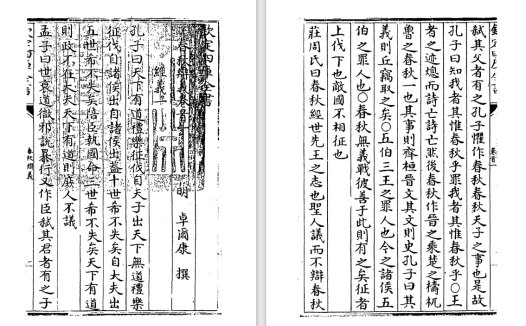 欽定四庫全書
春秋辯義卷首一
明 卓爾康 撰
經義一
孔子曰天下有道禮樂征伐自天子出天下無道禮樂
征伐自諸侯出自諸侯出蓋十世希不失矣自大夫出
五世希不失矣陪臣執國命三世希不失矣天下有道
則政不在大夫天下有道則庶人不議
孟子曰世衰道微邪說暴行又作臣弑其君者有之子
春秋辯義
弑其父者有之孔子懼作春秋春秋天子之事也是故
孔子曰知我者其惟春秋乎罪我者其惟春秋乎○王
者之迹熄而詩亡詩亡然後春秋作晉之乘楚之檮杌
魯之春秋一也其事則齊桓晉文其文則史孔子曰其
義則丘竊取之矣○五伯三王之罪人也今之諸侯五
伯之罪人也○春秋無義戰彼善于此則有之矣征者
上伐下也敵國不相征也
莊周氏曰春秋經世先王之志也聖人議而不辯春秋